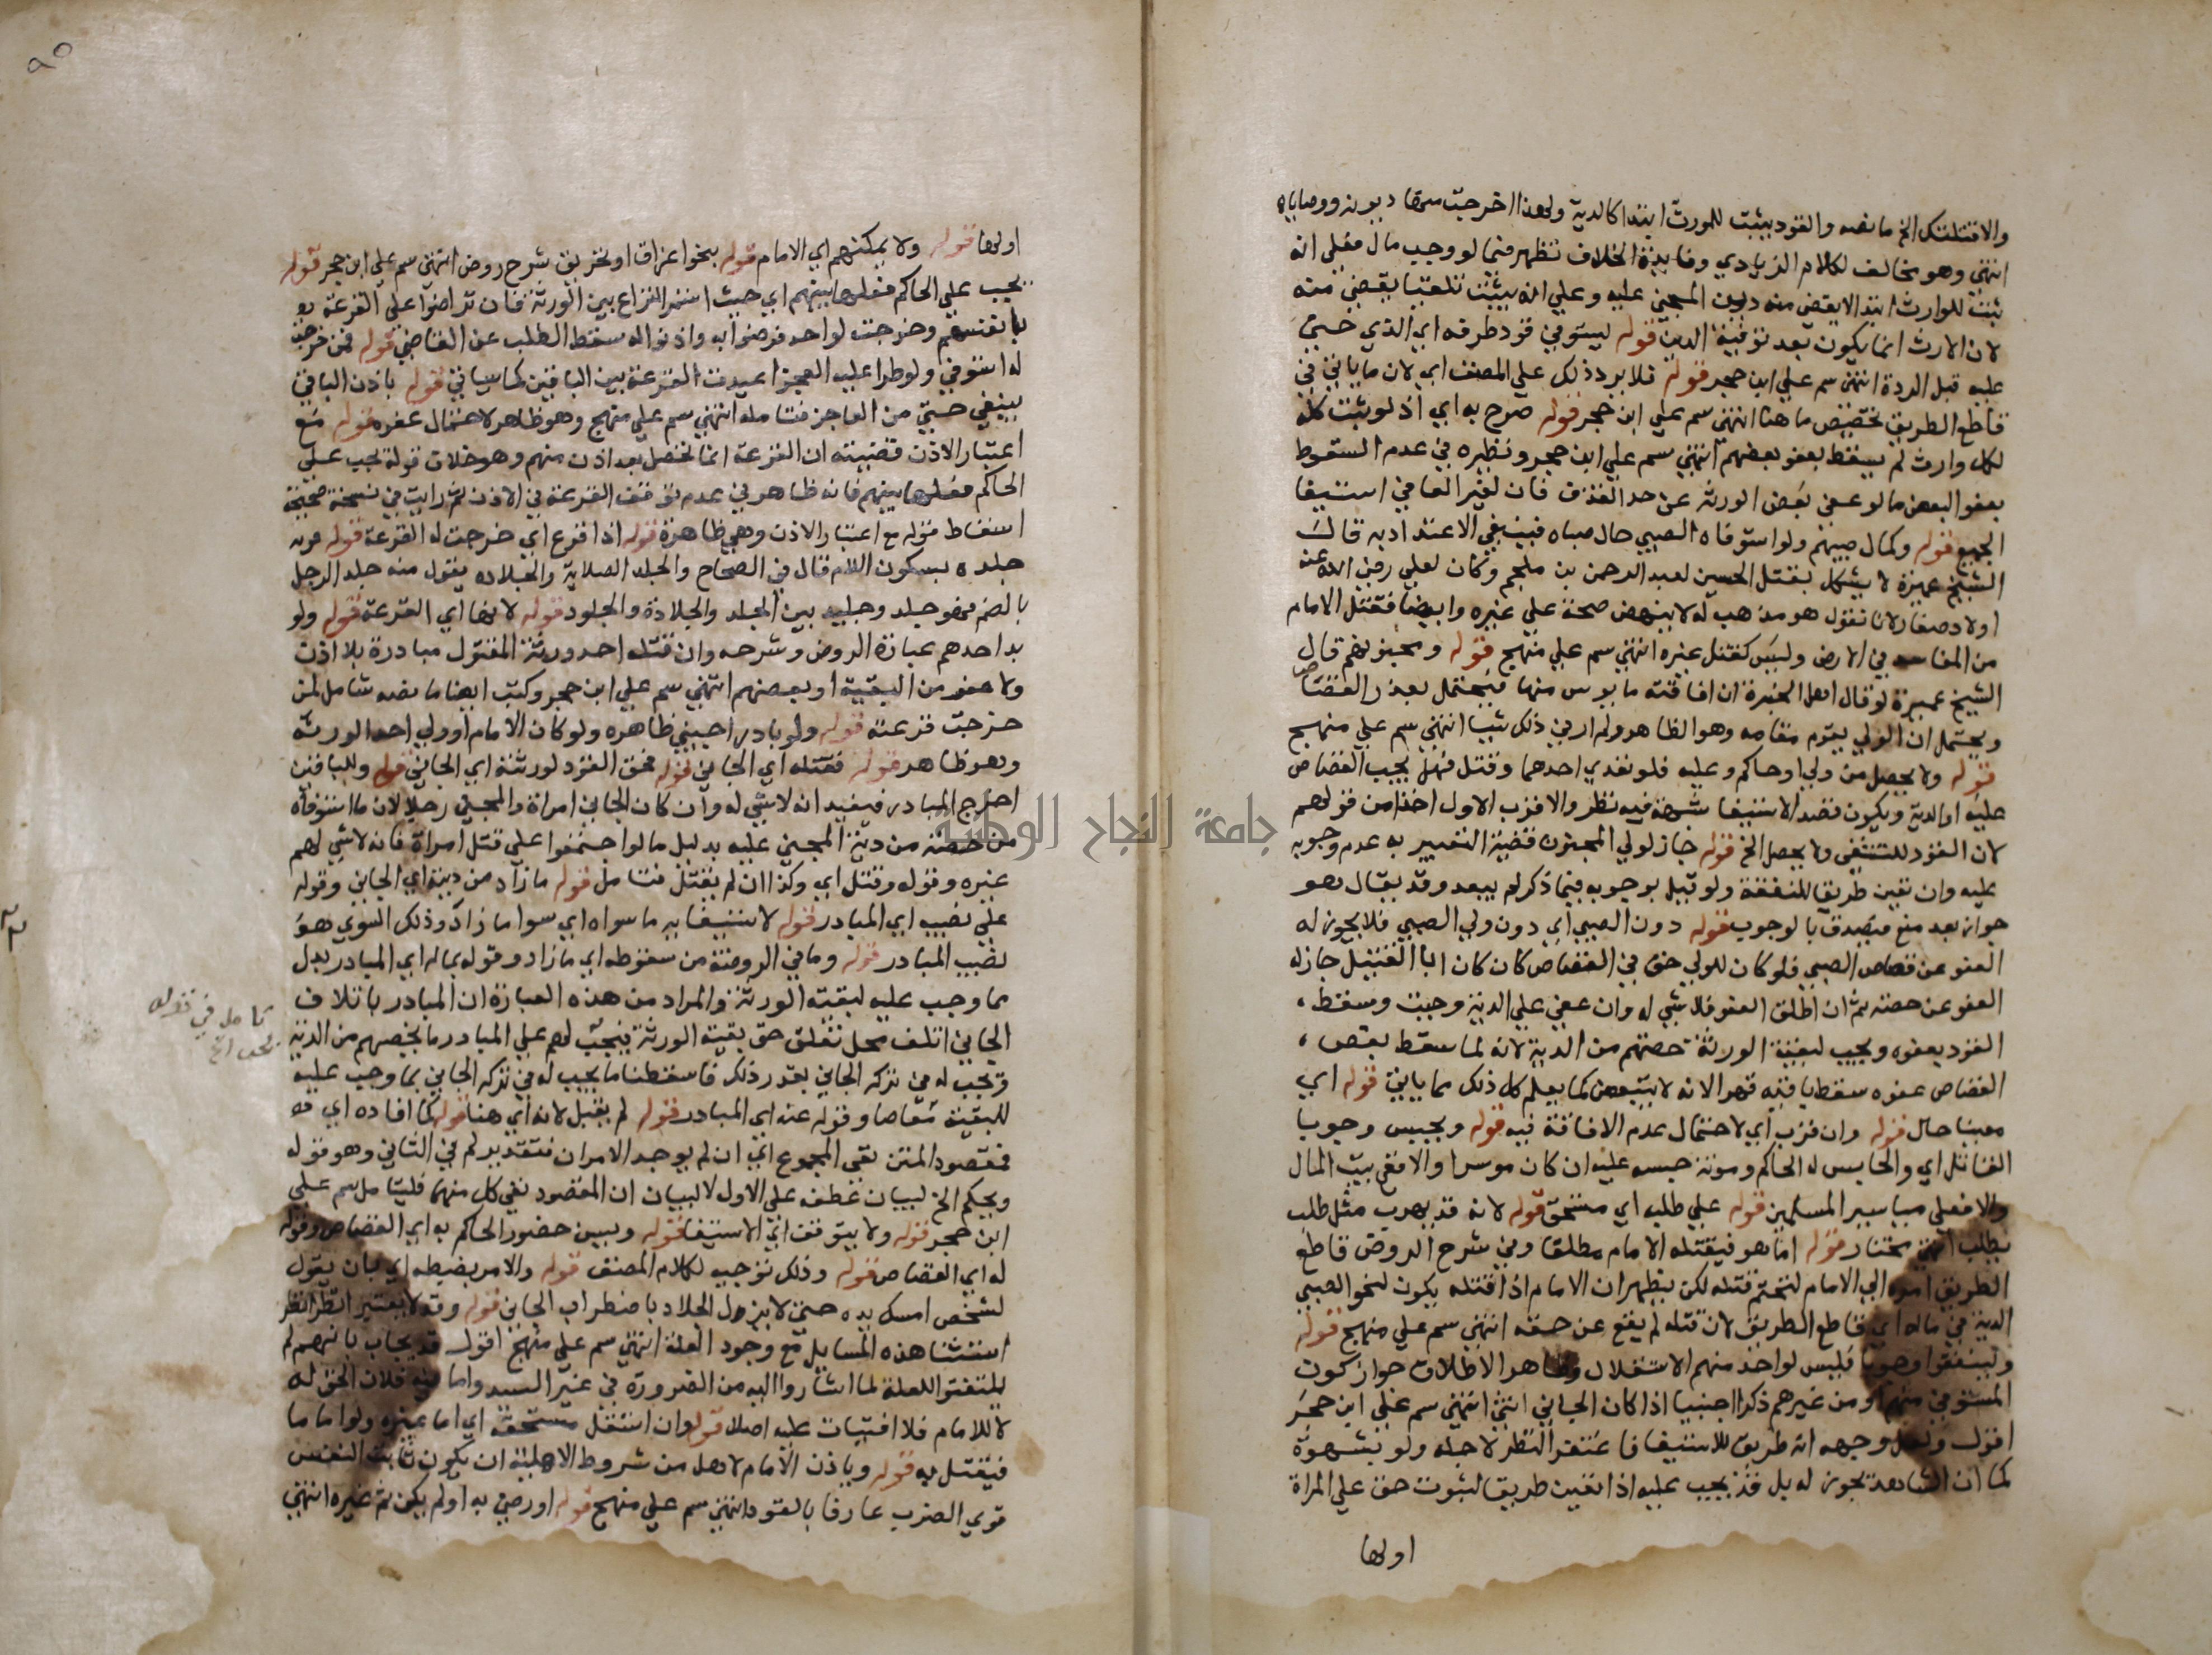 والاقتلتك الخ ما نصه والقود يثبت للمورث ابتدا كالدية ولهذا اخرجت منها ديونه ووصاياه
انتهى وهو مخالف لكلام الزيادي وفايدة الخلاف تظهر فيما لو وجب مال فعلى انه
يثبت للوارث ابتدا لا يقضى منه ديون المجني عليه وعلى انه يثبت تلقيا يقضى منه
لان الارث انما يكون بعد توفية الدين قوله ليستوفي قود طرفه اي الذي جني
عليه قبل الردة انتهى سم علي ابن حجر قوله فلا يرد ذلك علي المصنف اي لان ما ياتي في
قاطع الطريق تخصيص ما هنا انتهى سم علي ابن حجر قوله صرح به اي اذ لو ثبت كله
لكل وارث لم يسقط بعفو بعضهم انتهى سم علي ابن حجر ونظيره في عدم السقوط
بعفو البعض ما لو عفى بعض الورثة عن حد القذف فان لغير العافي استيفا
الجميع قوله وكمال صبيهم ولو استوفاه الصبي حال صباه فينبغي الاعتداد به قال
الشيخ عميرة لا يشكل بقتل الحسين لعبد الرحمن بن ملجم وكان لعلي رضي الله عنه
اولاد صغار لانا نقول هو مذهب له لا ينهض صحة علي غيره وايضا فقتل الامام
من المفاسد في الارض وليس كقتل غيره انتهى سم علي منهج قوله ومجنونهم قال
الشيخ عميرة لو قال اهل الخبرة ان افاقته مايوس منها فيحتمل تعذر القصاص
ويحتمل ان الولي يقوم مقامه وهو الظاهر ولم ار في ذلك شيا انتهى سم علي منهج
قوله ولا يحصل من ولي او حاكم وعليه فلو تعدي احدهما وقتل فهل يجب القصاص
عليه او الدية ويكون قصد الاستيفا شبهة فيه نظر والاقرب الاول اخذا من قولهم
لان القود للتشفي ولا يحصل الخ قوله جاز لولي المجنون قضية التعبير به عدم وجوبه
عليه وان تعين طريقا للنفقة ولو قيل بوجوبه فيما ذكر لم يبعد وقد يقال هو
جواز بعد منع فيصدق بالوجوب قوله دون الصبي اي دون ولي الصبي فلا يجوز له
العفو عن قصاص الصبي فلو كان للولي حق في القصاص كان كان ابا القتيل جاز له
العفو عن حصته ثم ان اطلق العفو فلا شي له وان عفى علي الدية وجبت وسقط
القود بعفوه ويجب لبقية الورثة حصتهم من الدية لانه لما سقط بعض
القصاص عفوه سقط باقيه قهرا لانه لا يتبعض كما يعلم كل ذلك مما ياتي قوله اي
معينا حال قوله وان قرب اي لاحتمال عدم الافاقة فيه قوله ويحبس وجوبا
القاتل اي والحابس له الحاكم ومونة حبسه عليه ان كان موسرا والا ففي بيت المال
والا فعلى مياسير المسلمين قوله علي طلب اي مستحق قوله لانه قد يهرب مثل طلب
يطلب انتهى مختار قوله اما هو فيقتله الامام مطلقا وفي شرح الروض قاطع
الطريق امره الي الامام لتحتم قتله لكن يظهر ان الامام اذا قتله يكون لنحو الصبي
الدية في ماله اي قاطع الطريق لان قتله لم يقع عن حقه انتهى سم علي منهج قوله
وليتفقوا وجوبا فليس لواحد منهم الاستقلال وظاهر الاطلاق جواز كون
المستوفي منهم او من غيرهم ذكرا اجنبيا اذا كان الجاني انثى انتهى سم علي ابن حجر
اقول ولعل وجهه انه طريق للاستيفا فاغتفر النظر لاجله ولو بشهوة
كما ان الشاهد يجوز له بل قد يجب عليه اذا تعين طريقا لثبوت حق علي المراة
اولها
٩٥
اولها قوله ولا يمكنهم اي الامام قوله بنحو اغراق او تحريق شرح روض انتهى سم علي ابن حجر قوله
يجب علي الحاكم فعلها بينهم اي حيث استمر النزاع بين الورثة فان تراضوا علي القرعة
بانفسهم وخرجت لواحد فرضوا به واذنوا له سقط الطلب عن القاضي قوله فمن خرجت
له استوفي ولو طرا عليه العجز اعيدت القرعة بين الباقين كما سياتي قوله باذن الباقي
ينبغي حتى من العاجز فتامله انتهى سم علي منهج وهو ظاهر لاحتمال عفوه قوله مع
اعتبار الاذن قضيته ان القرعة انما تحصل بعد اذن منهم وهو خلاف قوله يجب علي
الحاكم فعلها بينهم فانه ظاهر في عدم توقف القرعة في الاذن ثم رايت في نسخة صحيحة
اسقاط قوله مع اعتبار الاذن وهي ظاهرة قوله اذا اقرع اي خرجت له القرعة قوله
جلده بسكون اللام قال في الصحاح والجلد الصلابة والجلادة يقول منه جلد الرجل
بالضم فهو جلد وجليد بين الجلد والجلادة والجلود قوله لانها اي القرعة قوله ولو
بدر احدهم عبارة الروض وشرحه وان قتله احد ورثة المقتول مبادرة بلا اذن
ولا عفو من البقية او بعضهم انتهى سم علي ابن حجر وكتب ايضا ما نصه شامل لمن
خرجت قرعته قوله ولو بادر اجنبي ظاهره ولو كان الامام او ولي احد الورثة
وهو ظاهر قوله فقتله اي الجاني قوله فحق القود لورثته اي الجاني قوله وللباقين
اخرج المبادر فيفيد انه لا شي له وان كان الجاني امراة والمجني رجلا لان ما استوفاه
من حصته من دية المجني عليه بدليل ما لو اجتمعوا علي قتل امراة فانه لا شي لهم
غيره وقوله وقتل اي وكذا ان لم يقتل فتامل قوله ما زاد من دية اي الجاني وقوله
علي نصيبه اي المبادر قوله لاستيفايه ما سواه اي سوا ما زاد وذلك السوي هو
نصيب المبادر قوله وما في الروضة من سقوطه اي ما زاد وقوله بماله اي المبادر بدل
مما وجب عليه لبقية الورثة والمراد من هذه العبارة ان المبادر باتلاف
الجاني اتلف محل تعلق حق بقية الورثة فيجب لهم علي المبادر ما يخصهم من الدية
ويجب له في تركة الجاني بقدر ذلك فاسقطنا ما يجب له في تركة الجاني بما وجب عليه
للبقية تقاصا وقوله عنه اي المبادر قوله لم يقبل لانه اي هنا قوله كما افاده اي
فمقصود المتن نفي المجموع اي ان لم يوجد الامران فتقدير لم في الثاني وهو قوله
ويحكم الخ لبيان عطفه علي الاول لا لبيان ان المقصود نفي كل منهما فليتامل سم علي
ابن حجر قوله ولا يتوقف اي الاستيفا قوله ويسن حضور الحاكم به اي القصاص وقوله
له اي القصاص قوله وذلك توجيه لكلام المصنف قوله والامر بضبطه اي بان يقول
لشخص امسك يده حتى لا يزول الجلاد باضطراب الجاني قوله
استثنا هذه المسايل مع وجود العلة انتهى سم علي منهج اقول قد يجاب بانهم لم
يلتفتوا للعلة لما اشاروا اليه من الضرورة في غير السيد واما فيه فلان الحق له
لا للامام فلا افتيات عليه اصلا قوله وان استقل مستحقه اي اما غيره ولو اماما
فيقتل به قوله وياذن الامام لاهل من شروط الاهلية ان يكون ثابت النفس
قوي الضرب عارفا بالقود انتهى سم علي منهج قوله اورضي به اولم يكن ثم غيره انتهى
تامل في قوله
جامعة النجاح الوطنية